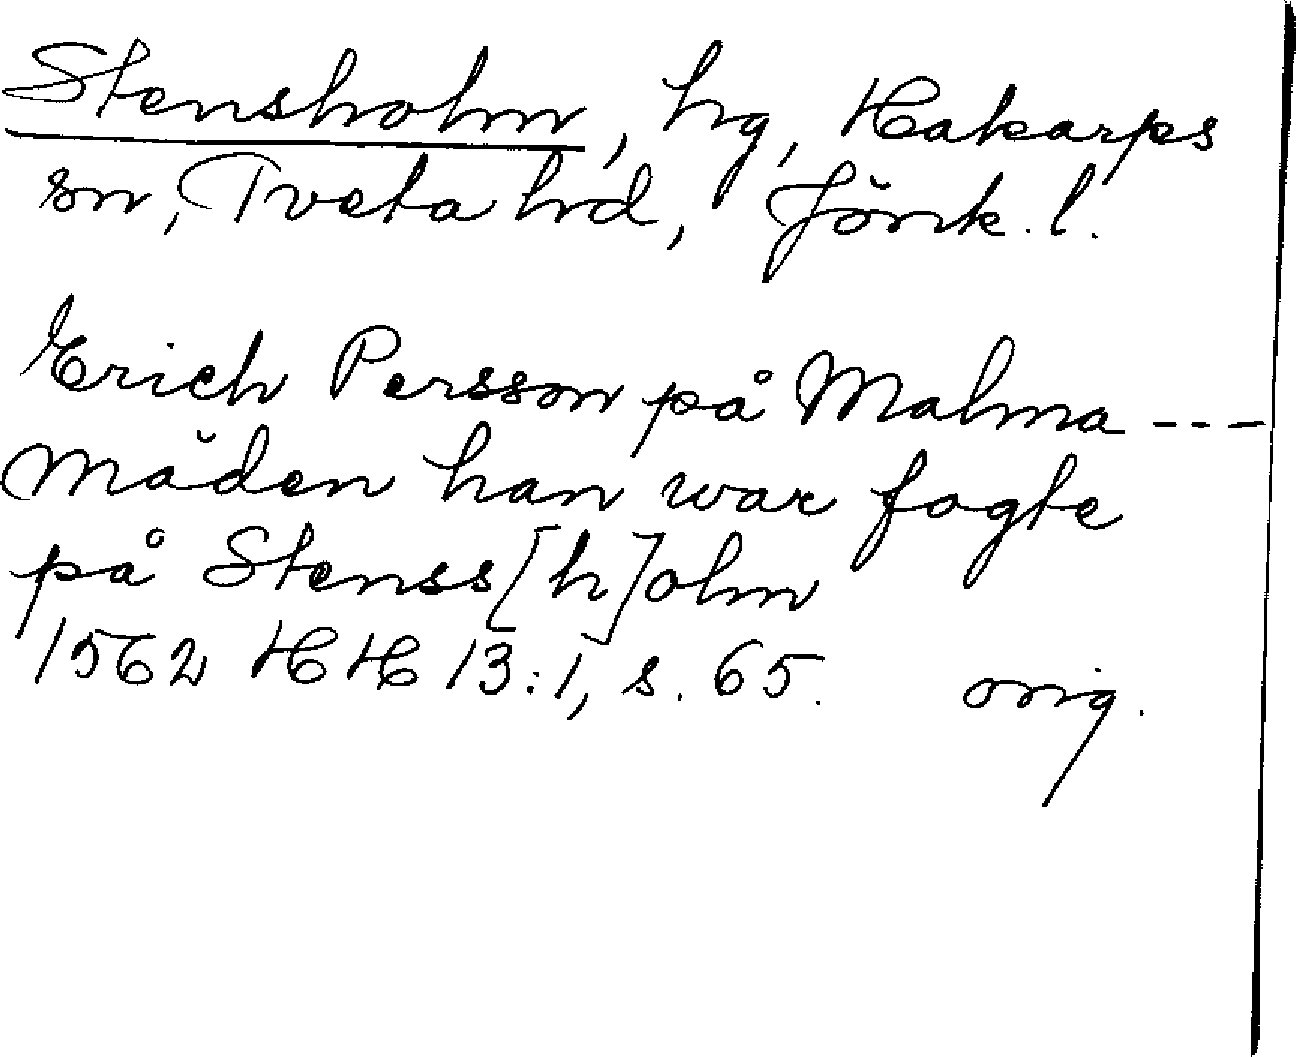 Stensholm, hg, Hakarps
sn, Tveta hd, Jönk. l.
Erich Persson på Malma ---
Mäden han war fogte
på Stenss[h]olm
1562 HH 13:1, s. 65. orig.